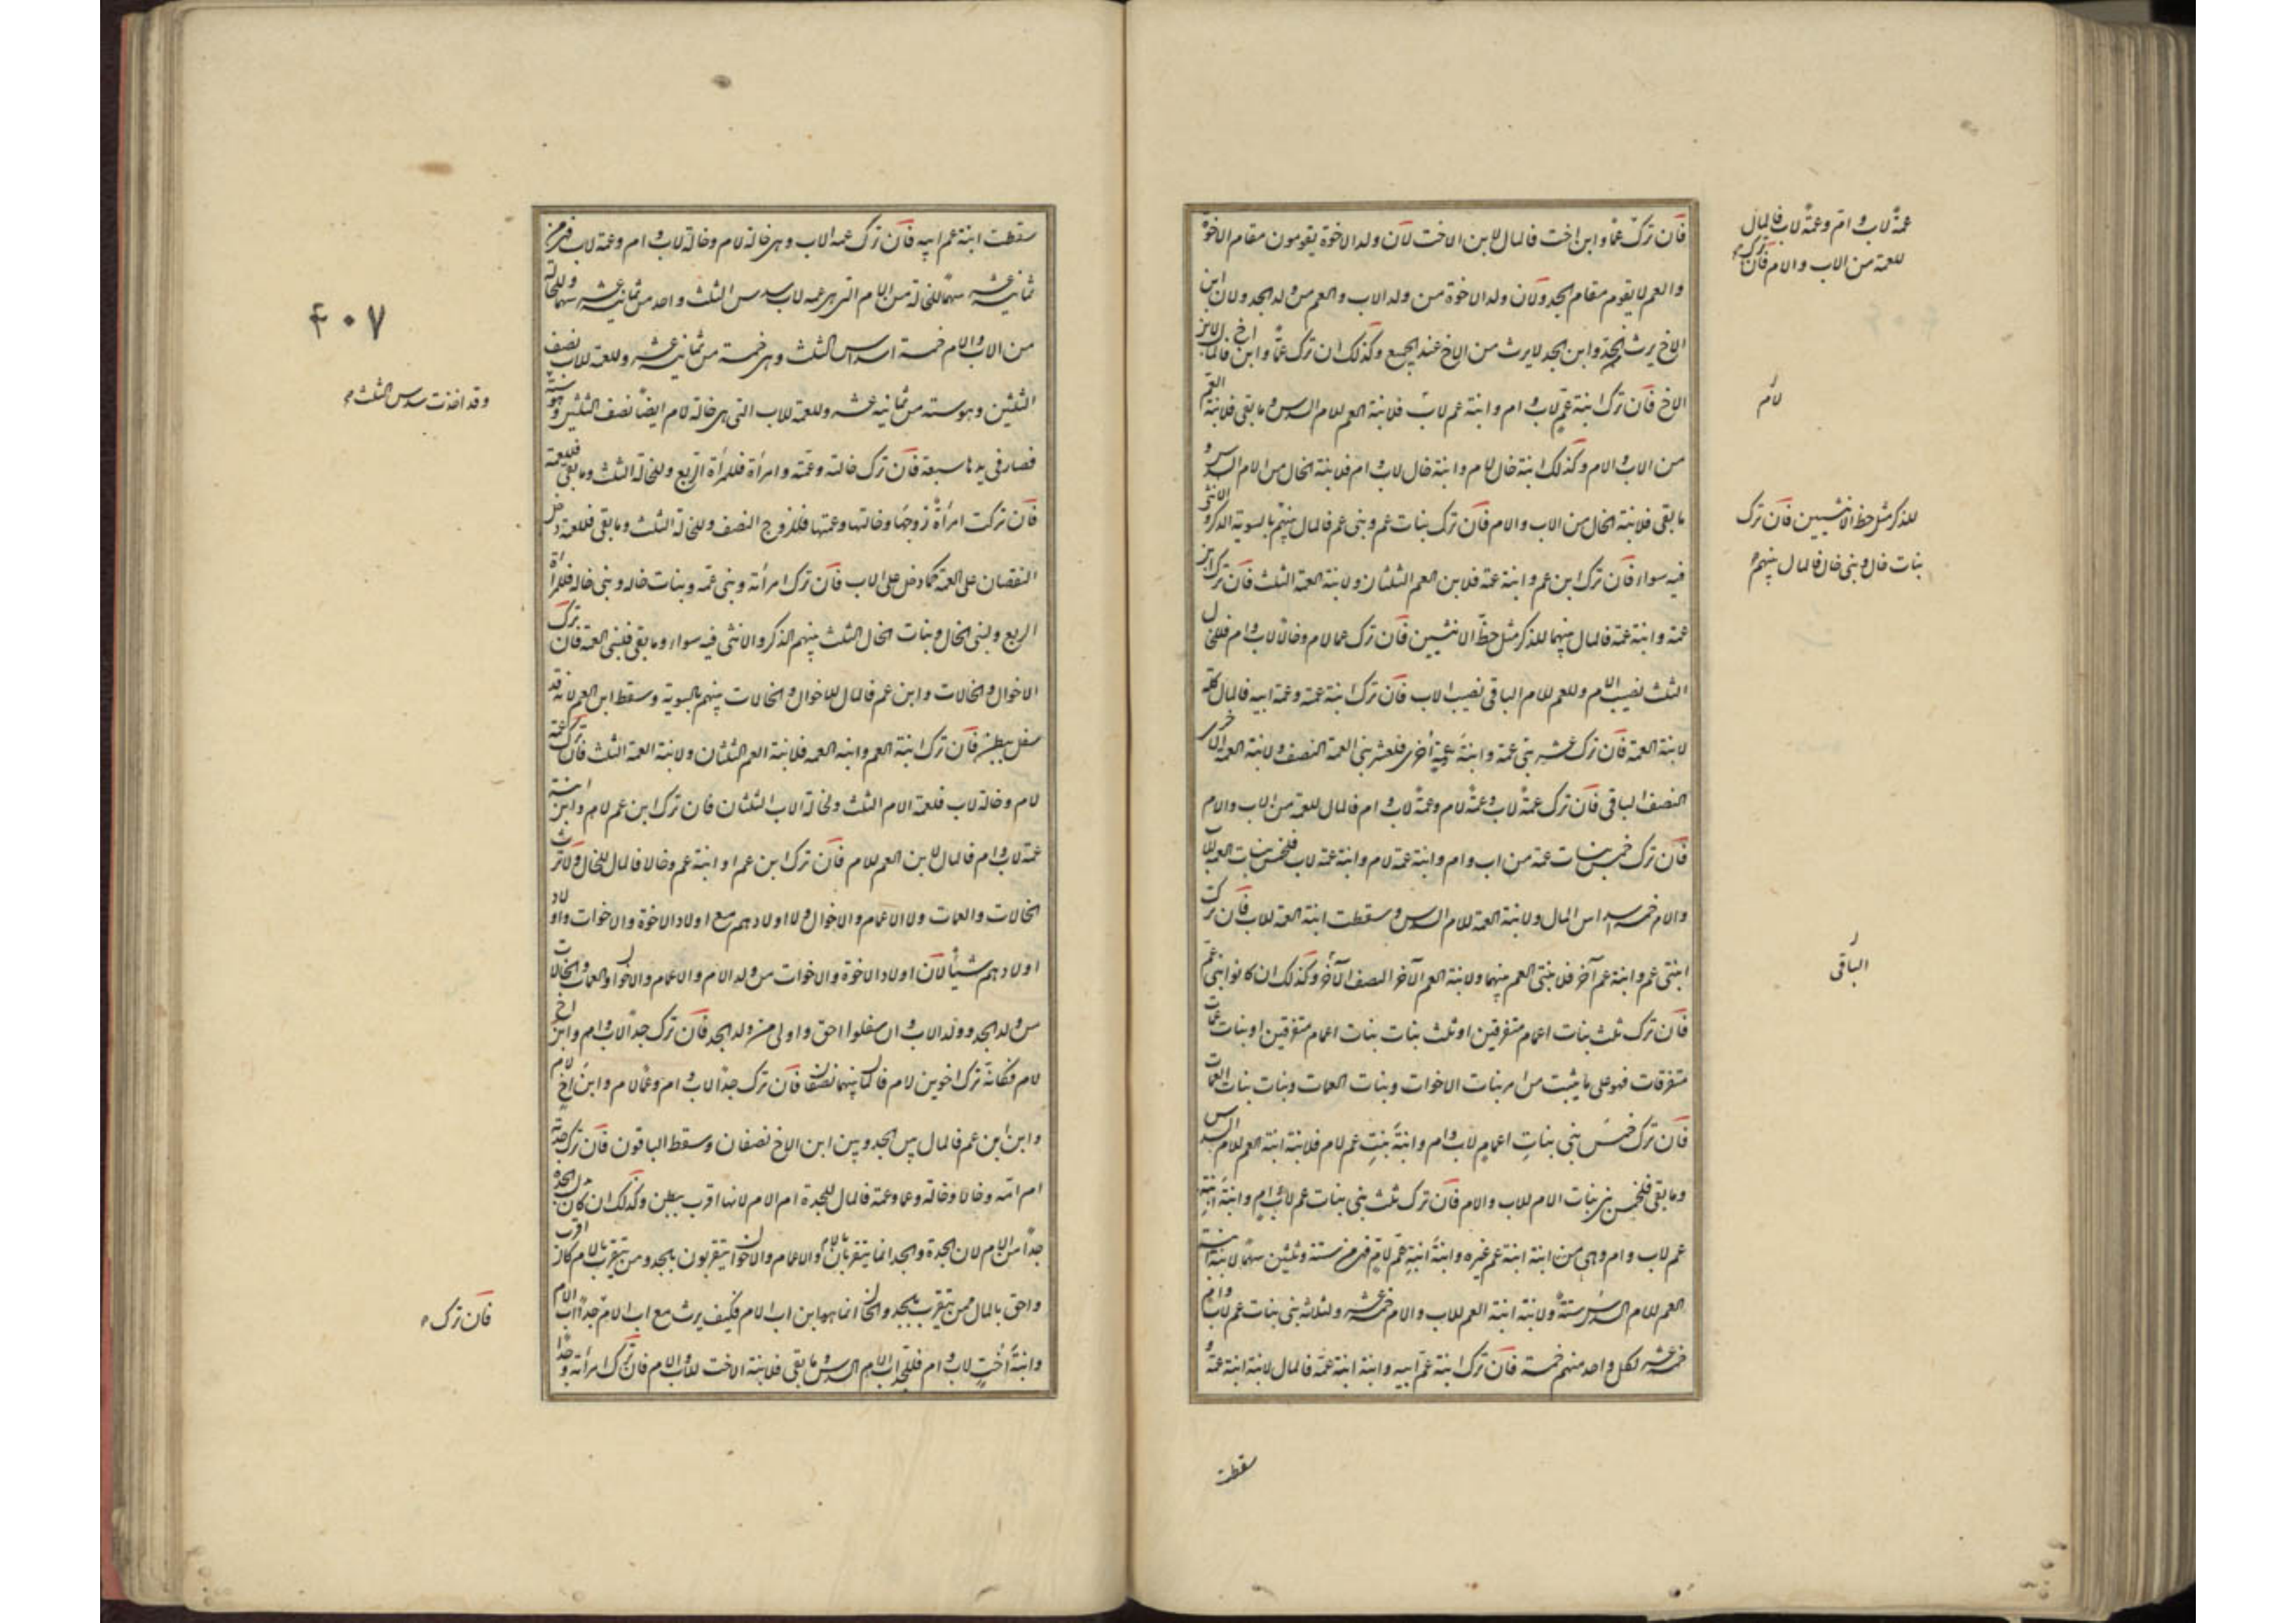 فان ترك عمّا وابن اخت فالمال لابن الاخت لان ولد الاخوة يقومون مقام الاخوة
والعم لا يقوم مقام الجد ولان ولد الاخوة من ولد الاب والعم من ولد الجد ولان ابن
الاخ يرث مع الجد وابن الجد لا يرث من الاخ عند الجميع وكذلك ان ترك عمّا وابن اخ فالمال لابن
الاخ فان ترك ابنة عم لاب وام وابنة عم لاب فلابنة العم للام السدس وما بقى فلابنة العم
من الاب والام وكذلك ابنة خال لام وابنة خال لاب وام فلابنة الخال من الام السدس و
ما بقى فلابنة الخال من الاب والام فان ترك بنات عم وبنى عم فالمال بينهم بالسوية الذكر والانثى
فيه سواء فان ترك ابن عم وابنة عمة فلابن العم الثلثان ولابنة العمة الثلث فان ترك ابن
عمة وابنة عمة فالمال بينهما للذكر مثل حظّ الانثيين فان ترك عما لام وخالا لاب وام فللخال
الثلث نصيب الام وللعم للام الباقى نصيب الاب فان ترك ابنة عمة وعمة ابيه فالمال كلّه
لابنة العمة فان ترك عشر بنى عمة وابنة عمة اخرى فلعشر بنى العمة النصف ولابنة العمة الاخرى
النصف الباقى فان ترك عمة لاب وعمة لام وعمة لاب وام فالمال للعمة من الاب والام
فان ترك خمس بنات عمة من اب وام وابنة عمة لام وابنة عمة لاب فلخمس بنات العمة للاب
والام خمسة اسداس المال ولابنة العمة للام السدس وسقطت ابنة العمة للاب فان ترك
ابنتى عم وابنة عم آخر فلابنتى العم بينهما ولابنة العم الآخر النصف الآخر وكذلك ان كانوا ابنى عم
فان ترك ثلث بنات اعمام متفرقين او ثلث بنات بنات اعمام متفرقين او بنات عمات
متفرقات فهو على ما يثبت من امر بنات الاخوات وبنات العمات وبنات بنات العمات
فان ترك خمس بنى بنات اعمام لاب وام وابنة بنت عم لام فلابنة ابنة العم للام السدس
وما بقى فلخمس بنى بنات الام للاب والام فان ترك ثلث بنى بنات عم لاب وام وابنة ابنة
عم لاب وام وهى من ابنة ابنة عم غيره وابنة ابنة عم لام فهى من ستة وثلثين سهما لابنة ابنة
العم للام السدس ستة ولابنة ابنة العم للاب والام خمسة عشر ولثلاثة بنى بنات عم لاب وام
خمسة عشر لكل واحد منهم خمسة فان ترك ابنة عم ابيه وابنة ابنة عمة فالمال لابنة ابنة عمة و
سقطت
عمة لاب وام وعمة لاب فالمال
للعمة من الاب والام فان ترك
لام
للذكر مثل حظ الانثيين فان ترك
بنات خال وبنى خال فالمال بينهم
الباقى
سقطت ابنة عم ابيه فان ترك عمة الاب وهى خالة لام وخالة لاب وام وعمة لاب فهى من
ثمانية عشر سهمًا للخالة من الام التى هى عمة لاب سدس الثلث واحد من ثمانية عشر سهما وللخالة
من الاب والام خمسة اسداس الثلث وهى خمسة من ثمانية عشر وللعمة للاب نصف
الثلثين وهو ستة من ثمانية عشر وللعمة للاب التى هى خالة لام ايضًا نصف الثلثين وهو ستة
فصار فى يدها سبعة فان ترك خالته وعمته وامراة فللمرأة الربع وللخالة الثلث وما بقى فللعمة
فان تركت امرأة زوجها وخالتها وعمتها فللزوج النصف وللخالة الثلث وما بقى فللعمة دخل
النقصان على العمة كما دخل على الاب فان ترك امرأته وبنى عمّه وبنات خاله وبنى خاله فللمرأة
الربع ولبنى الخال وبنات الخال الثلث بينهم الذكر والانثى فيه سواء وما بقى فلبنى العمة فان ترك
الاخوال والخالات وابن عم فالمال للاخوال والخالات بينهم بالسوية وسقط ابن العم لانه قد
سفل ببطن فان ترك ابنة العم وابنة العمه فلابنة العم الثلثان ولابنة العمة الثلث فان ترك عمة
لام وخالة لاب فلعمة الام الثلث ولخالة الاب الثلثان فان ترك ابن عم لام وابن ابنة
عمة لاب وام فالمال لابن العم للام فان ترك ابن عم او ابنة عم وخالا فالمال للخال ولا ترث
الخالات والعمات ولا الاعمام والاخوال ولا اولادهم مع اولاد الاخوة والاخوات واولاد
اولادهم شيأ لان اولاد الاخوة والاخوات من ولد الام والاعمام والاخوال والعمات والخالات
من ولد الجد وولد الاب وان سفلوا احق واولى من ولد الجد فان ترك جدا لاب وام وابن اخ
لام فكانه ترك اخوين لام فالمال بينهما نصفان فان ترك جدا لاب وام وعما لام وابن اخ لام
وابن ابن عم فالمال بين الجد وبين ابن الاخ نصفان وسقط الباقون فان ترك جدته
ام امه وخالا وخالة وعما وعمة فالمال للجدة ام الام لانها اقرب ببطن وكذلك ان كان بدل الجدة
جدا من الام لان الجدة والجد انما يتقربان بالام والاعمام والاخوال يتقربون بالجد ومن يتقرب بالام كان اقرب
واحق بالمال ممن يتقرب بالجد والخال انما هو ابن اب الام فكيف يرث مع اب الام جدا اب الام
وابنة اخت لاب وام فللجد اب الام السدس وما بقى فلابنة الاخت للاب والام فان ترك امرأته وجدا و
٤٠٧
وقد اخذت سدس الثلث
فان ترك